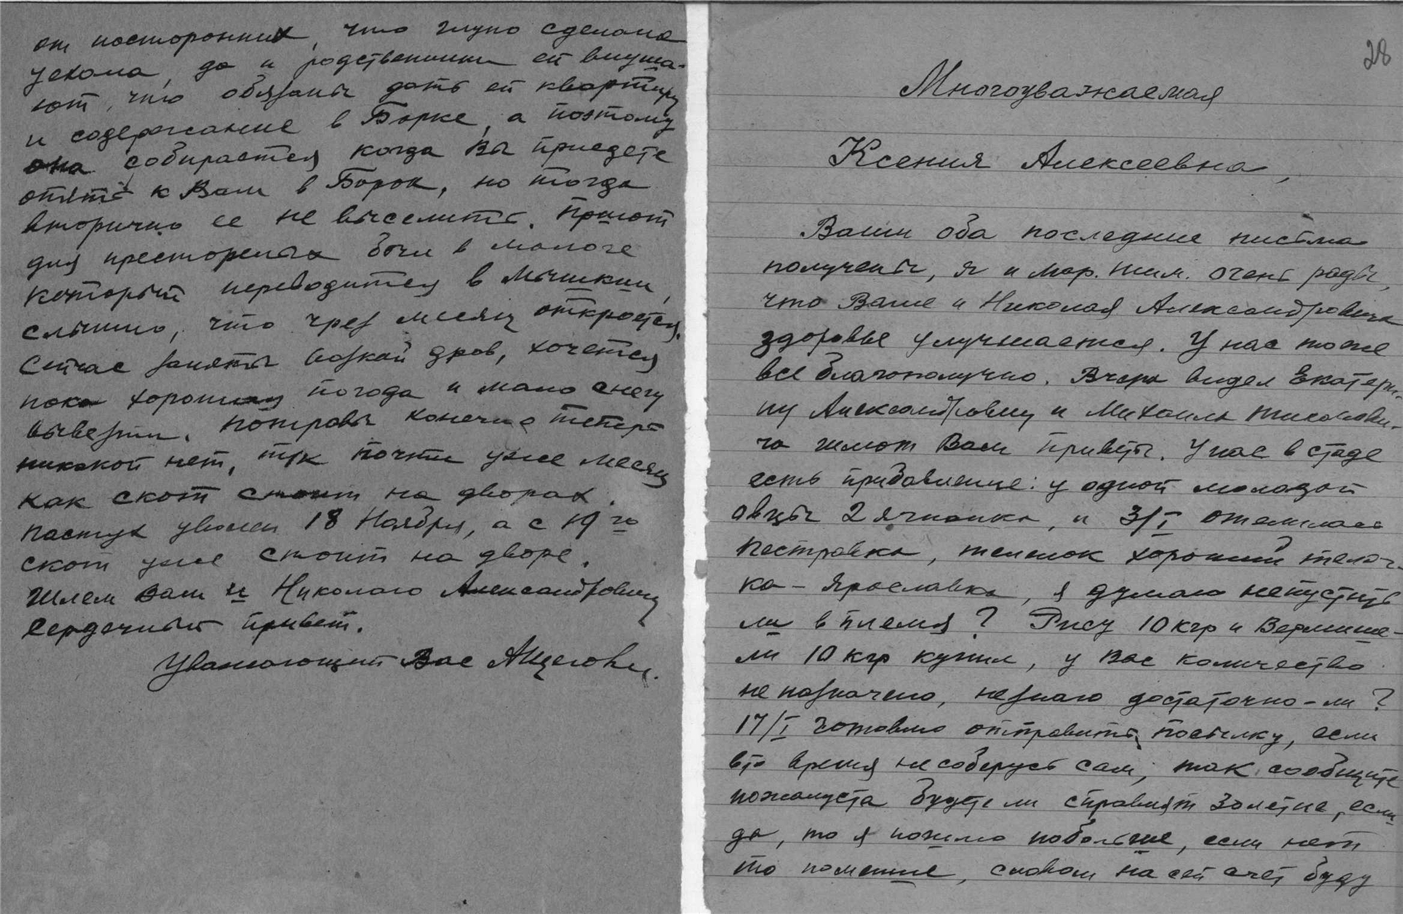 от посторонних, что глупо сделала
уехала, да и родственники ей внуша-
ют, что обязаны дать ей квартиру
и содержание в Борке, а поэтому
она собирается когда Вы приедете
опять к Вам в Борок, но тогда
вторично ее не выселить. Приют
для престорелых был в Мологе
который переводится в Мышкин,
слышно, что чрез месяц откроется.
Сейчас заняты возкой дров, хочется
пока хорошая погода и мало снегу
вывезти. Потравы конечно теперь
никакой нет, т/к почти уже месяц
как скот стоит на дворах.
Пастух уволен 18 Ноября, а с 19го
скот уже стоит на дворе.
Шлем Вам и Николаю Александровичу
Сердечный привет.
Уважающий Вас
28
Многоуважаемая
Ксения Алексеевна,
Ваши оба последние письма
получены, я и Мар. Тим. очень рады,
что Ваше и Николая Александровича
здоровье улучшается. У нас тоже
все благополучно. Вчера видел Екатери-
ну Александровну и Михаила Тихонови-
ча шлют Вам приветы. У нас в стаде
есть прибавление: у одной молодой
овцы 2 ягненка, и 3/I отелилась
Пестравка, теленок хороший телоч-
ка - Ярославка, я думаю непустить
ли в племя? Рису 10 кгр и Вермише-
ли 10 кгр купил, у Вас количество
не назначено, незнаю достаточно-ли?
17/I готовлю отправить посылку, если
в то время несоберусь сам, так сообщите
пожалуста будете ли справлят Золетие, если
да, то я пошлю побольше, если нет
то поменше, словом на сей счет буду